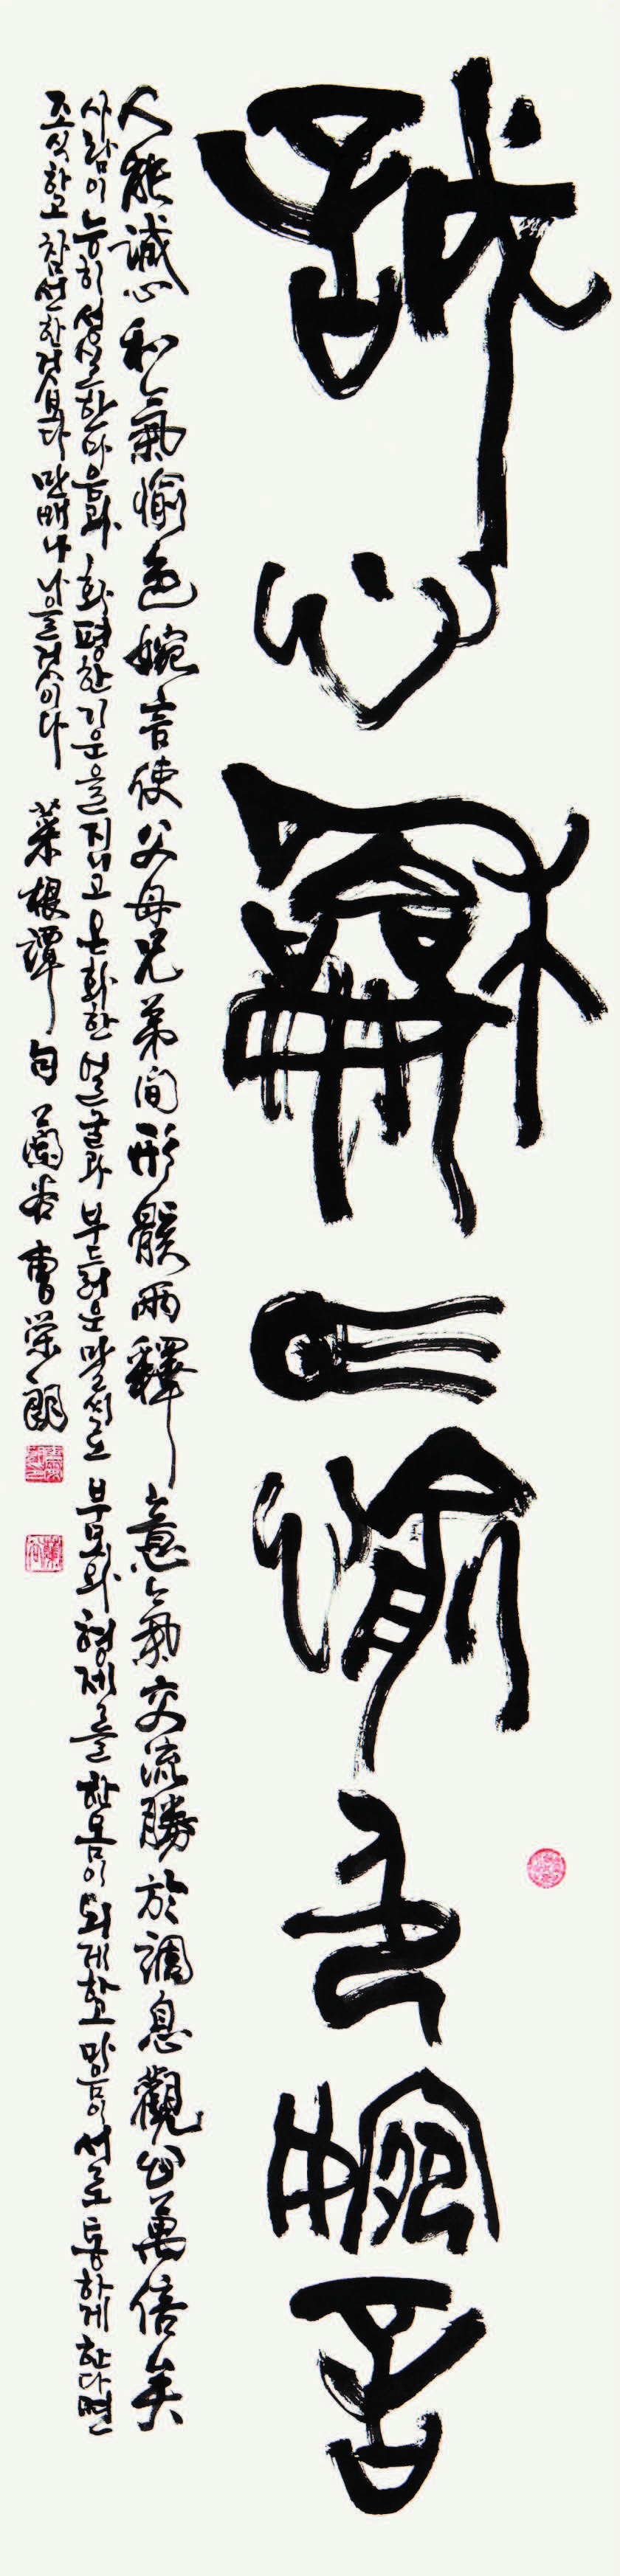 誠心龢气愉色婉言
人能誠心和氣愉色婉言使父母兄弟間形骸兩釋意氣交流勝於調息觀心萬倍矣
사람이 능히 성실한 마음과 화평한 기운을 지니고 온화한 얼굴과 부드러운 말씨로 부모와 형제를 한몸이 되게하고 마음이 서로 통하게 한다면
조식하고 참선한것보다 만배나 나을것이다 菜根譚句 蘭谷 曹榮朗